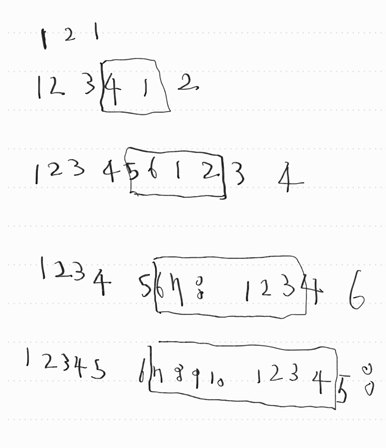 1 2 1
1 2 3 4 1 2
1 2 3 4 5 6 1 2 3 4
1 2 3 4 5 6 7 8 1 2 3 4 6
1 2 3 4 5 6 7 8 9 10 1 2 3 4 5 8